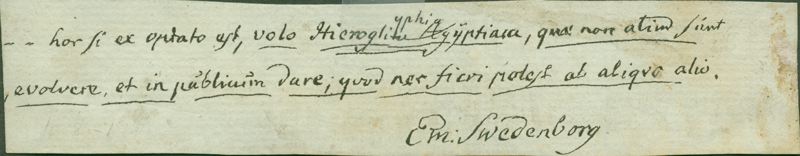 -- hoc si ex optato est, volo Hieroglyphica Ægÿptiaca, quæ non aliud sunt
evolvere, et in publicum dare; quod nec fieri potest ab aliquo alio.
Em: Swedenborg